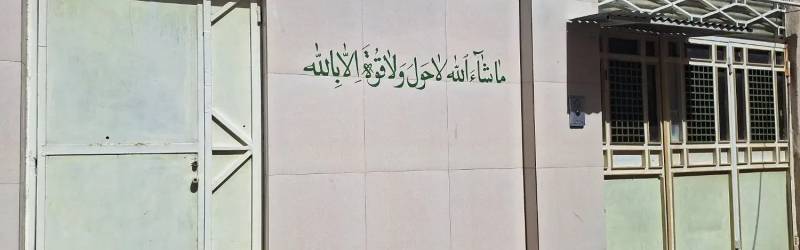 ماشآءَ ٱللّٰه لاحَولَ وَلاقُوَّةَ اِلاّبِاللّٰه